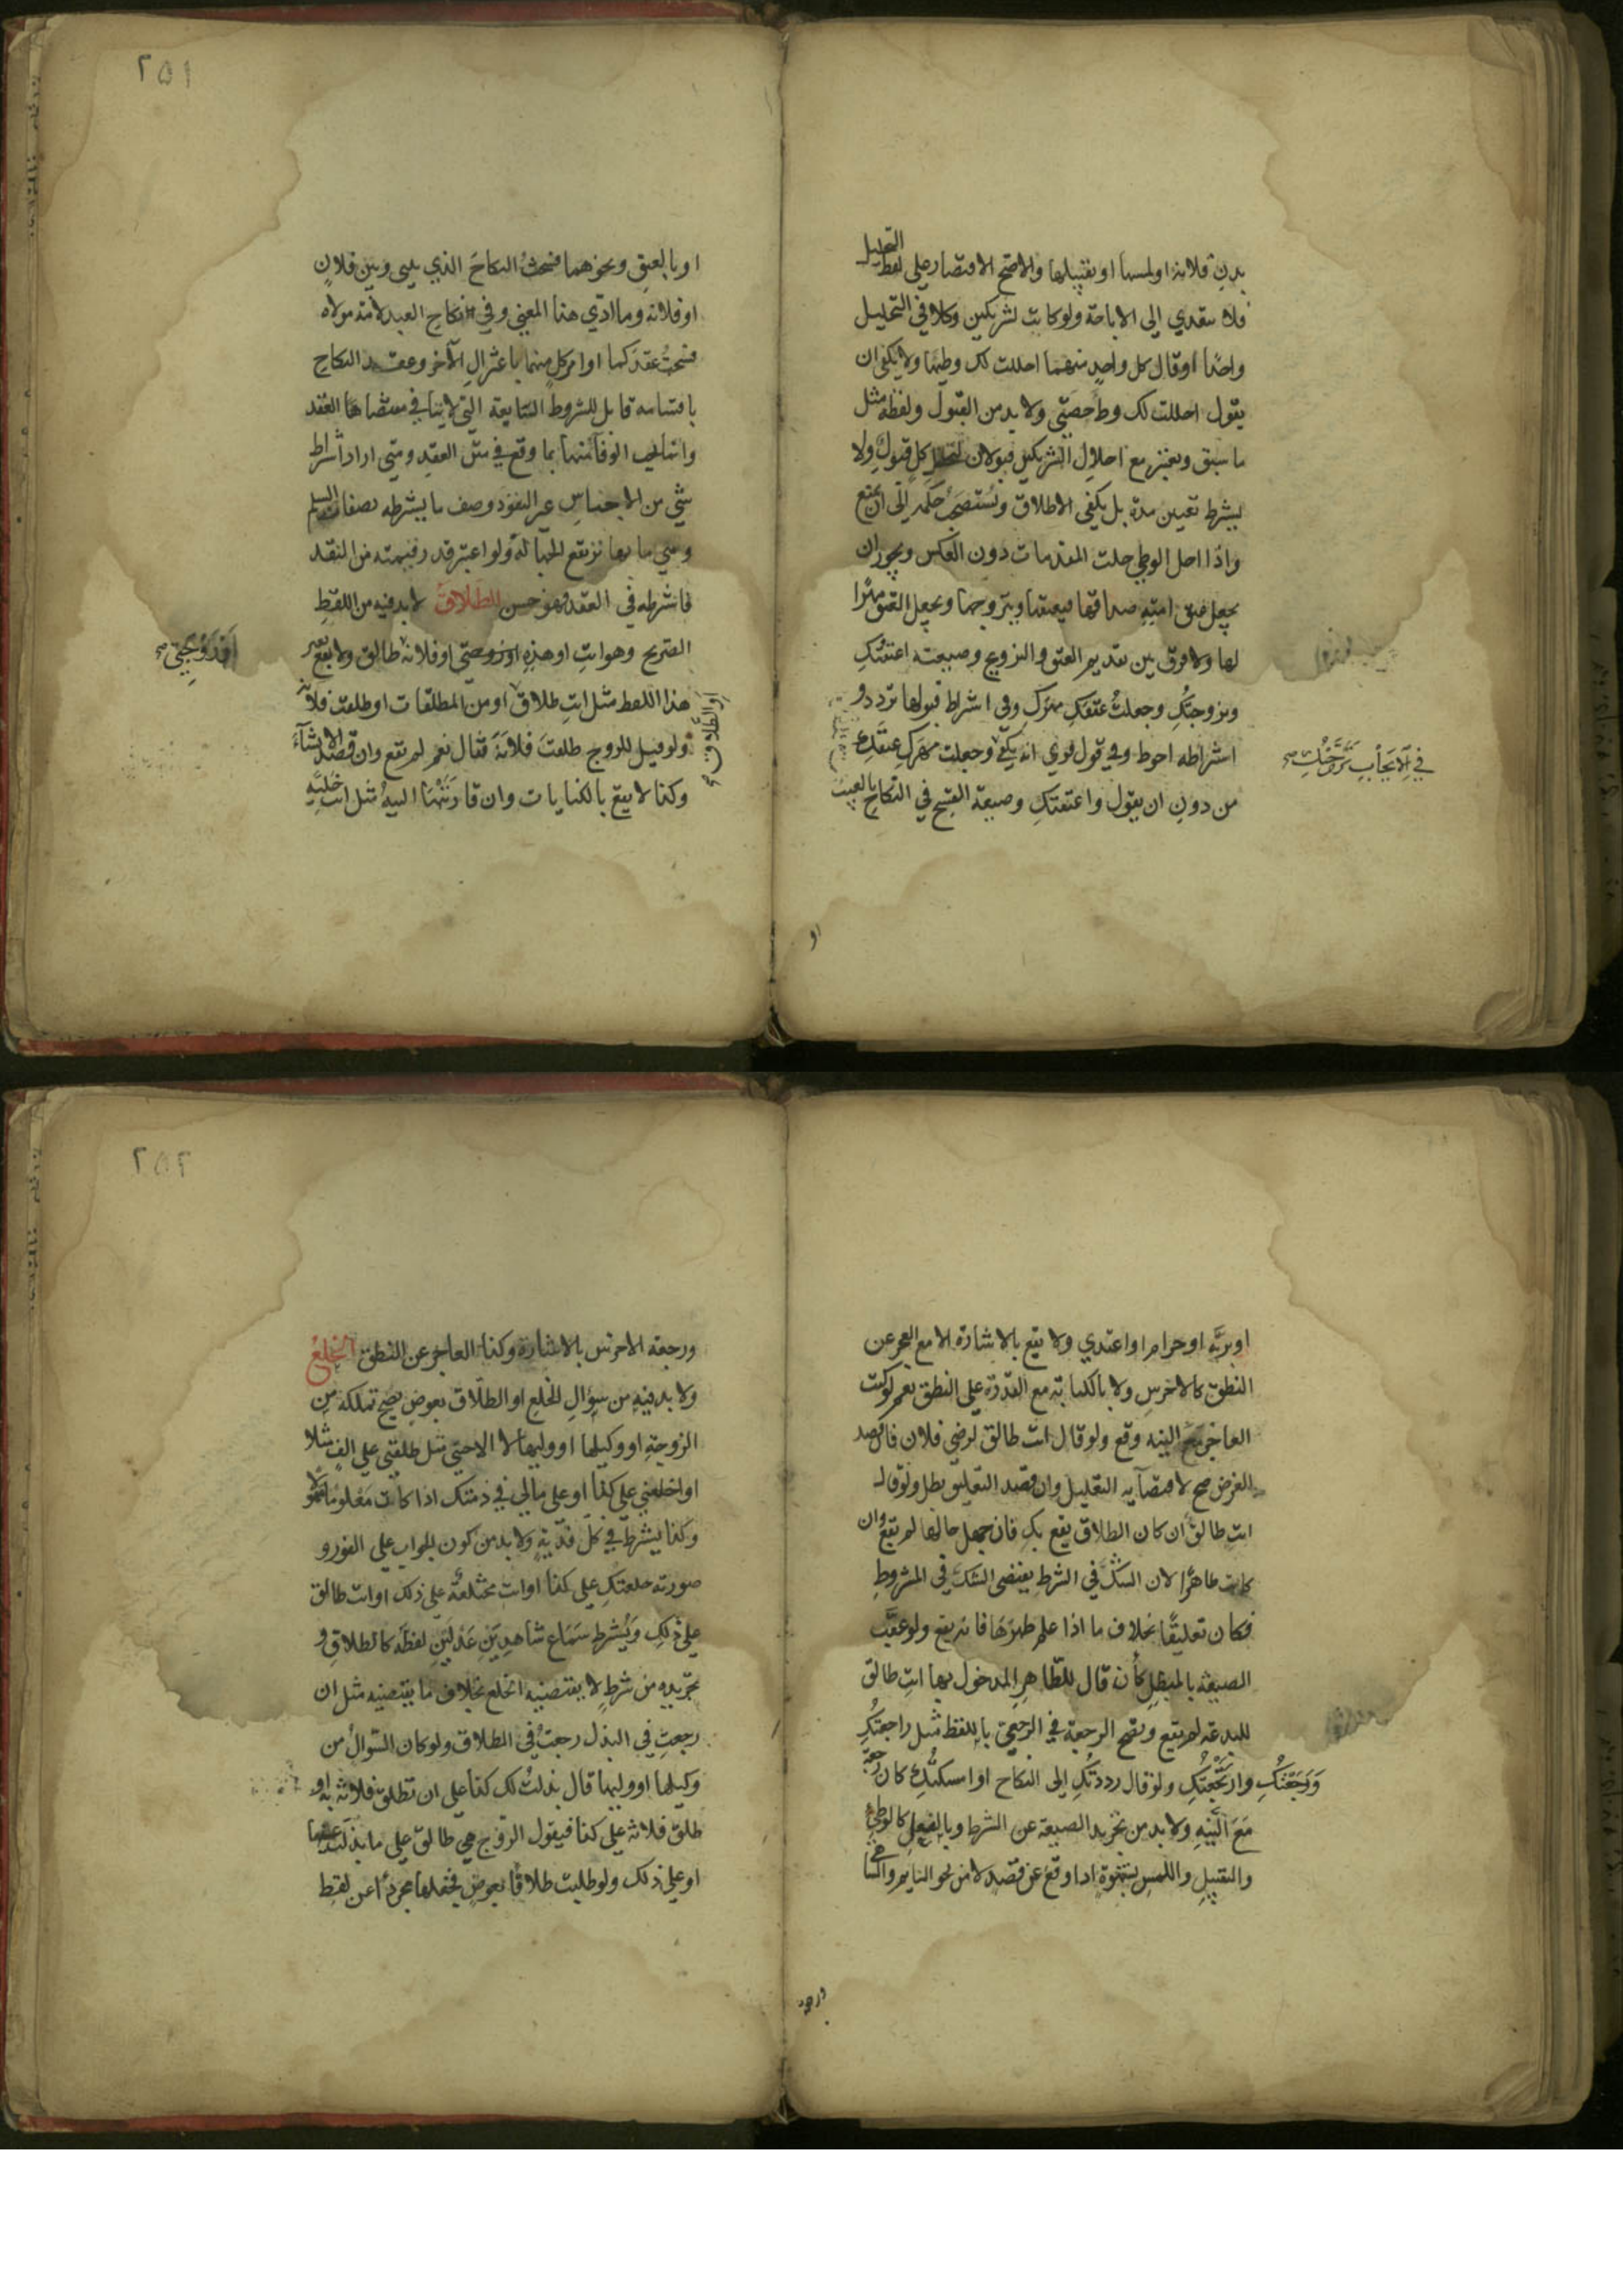 بدن فلانة او لمسها او تقبيلها والاصح الاقتصار على لفظ التحليل
فلا يتعدي الى الاباحة ولو كانت لشريكين وكلا في التحليل
واحدًا او قال كل واحد منهما احللت لك وطيها ولا يكفي ان
يقول احللت لك وطء حصتي ولا بد من القبول ولفظه مثل
ما سبق ويعتبر مع احلال الشريكين قبولان لتحليل كل قبول ولا
يشترط تعيين مدة بل يكفي الاطلاق ويستصحب حكمه الى ان يمنع
واذا احل الوطي حلت المقدمات دون العكس ويجوز ان
يجعل عتق امته صداقها فيعتقها ويتزوجها ويجعل العتق مهرًا
لها ولا فرق بين تقديم العتق والتزويج وصيغته اعتقتكِ
وتزوجتُكِ وجعلتُ عتقكِ مهركِ وفي اشتراط قبولها تردد و
اشتراطه احوط وفي قول قوي انه يكفي وجعلت مهركِ عتقكِ
في الايجاب تزوجتكِ صح
من دون ان يقول واعتقتكِ وصيغة الفسخ في النكاح بالعيب
او
٢٥١
او بالعتق ونحوهما فسختُ النكاحَ الذي بيني وبين فلانٍ
او فلانة وما ادّي هذا المعنى وفي نكاح العبد لامة مولاه
فسختُ عقدَكما او امر كلٍ منهما باعتزال الآخر وعقد النكاح
باقسامه قابل للشروط السّايغة التي لا ينافي مقتضاها العقد
وانما يجب الوفا منها بما وقع في متن العقد ومتى اراد اشتراط
شي من الاجناس غير النقود وصف ما يشترطه بصفات السلم
وفي ما بها ترتفع الجهالة ولو اعتبر قدر قيمته من النقد
فاشترطه في العقد فهو حسن الطلاق لا بد فيه من اللفظ
الصريح وهو انتِ او هذهِ او زوجتي او فلانة طالق ولا يقع بغير
او زوجتي صح
هذا اللفظ مثل انتِ طلاق او من المطلقات او طلقت فلانة
او الطلاق صح
ولو قيل للزوج طلقتَ فلانةَ فقال نعم لم يقع وان قصد الانشآءَ
وكذا لا يقع بالكنايات وان قارنتها النيةُ مثل انتِ خليّه
او بريّه او حرام او اعتدي ولا يقع بالاشارة الا مع العجز عن
النطق كالاخرس ولا بالكتابة مع القدرة على النطق نعم لو كتب
العاجز مع النيه وقع ولو قال انت طالق لرضى فلان فان قصد
الغرض صح لاقتضآيه التعليل وان قصد التعليق بطل ولو قال
انتِ طالق ان كان الطلاق يقع بكِ فان جهل حالها لم يقع وان
كانت طاهرًا لان الشكَّ في الشرط يقتضي الشك في المشروط
فكان تعليقًا بخلاف ما اذا علم طهرَها فانه يقع ولو عقّب
الصيغة بالمبطل كأن قال للطّاهر المدخول بها انتِ طالق
للبدعة لم يقع وتصح الرجعة في الرجعي باللفظ مثل راجعتُكِ
ورَجعتُكِ وارتجعتُكِ ولو قال رددتُكِ الى النكاح او امسكتُكِ كان رجعة
معَ النيهِ ولا بد من تجريد الصيغة عن الشرط وبالفعل كالوطيِ
والتقبيلِ واللمسِ بشهوةٍ اذا وقع عن قصد لا من نحو النايم والساهي
ورجعة
٢٥٢
ورجعة الاخرس بالاشارة وكذا العاجز عن النطق الخلع
ولا بد فيه من سؤال الخلع او الطلاق بعوض يصح تملكه من
الزوجةِ او وكيلها او وليها لا الاجنبي مثل طلقني على الف مثلا
او اخلعني على كذا او على مالي في ذمتك اذا كانت معلوما متمولا
وكذا يشترط في كلّ فديةٍ ولا بد من كون الجواب على الفور و
صورته خلعتكِ على كذا او انت مختلعةٌ على ذلك او انت طالق
على ذلكِ ويُشترط سماع شاهدينِ عدلين لفظَه كالطلاقِ و
تجريده من شرطٍ لا يقتضيه الخلع بخلاف ما يقتضيه مثل ان
رجعتِ في البذل رجعتُ في الطلاق ولو كان السّوالُ من
وكيلها او وليها قال بذلتُ لك كذا على ان تطلق فلانة به او
طلق فلانة على كذا فيقول الزوج هي طالق على ما بذلت عنها
او على ذلك ولو طلبت طلاقًا بعوضٍ فخلعها مجردًا عن لفظ